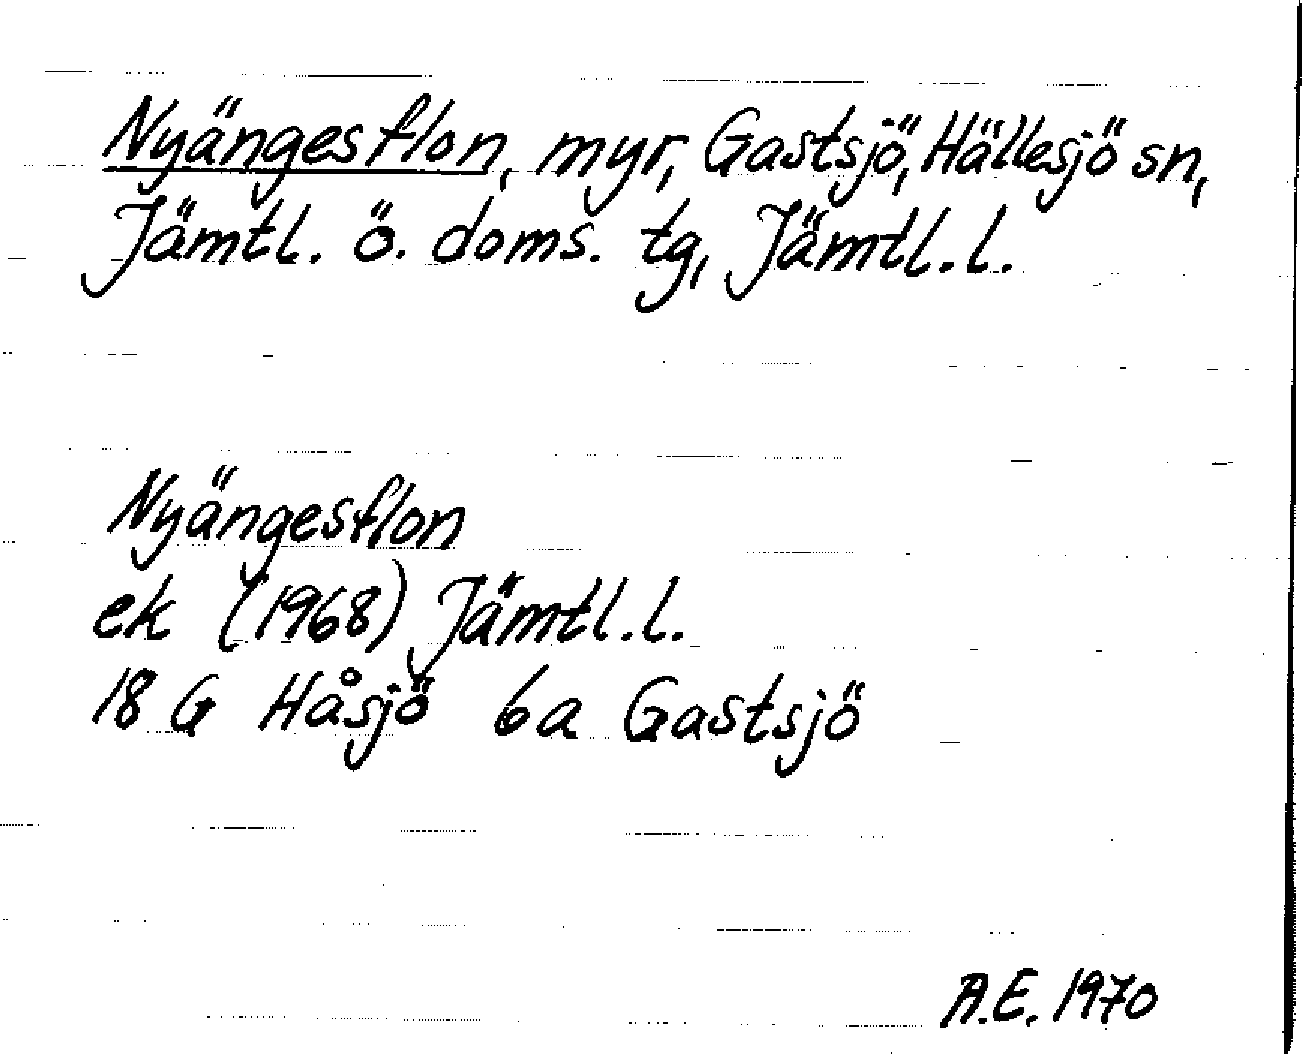 Nyängesflon, myr, Gastsjö, Hällesjö sn,
Jämtl. ö. doms. tg, Jämtl. l.
Nyängesflon
ek (1968) Jämtl. l.
18 G Håsjö 6a Gastsjö
A.E. 1970